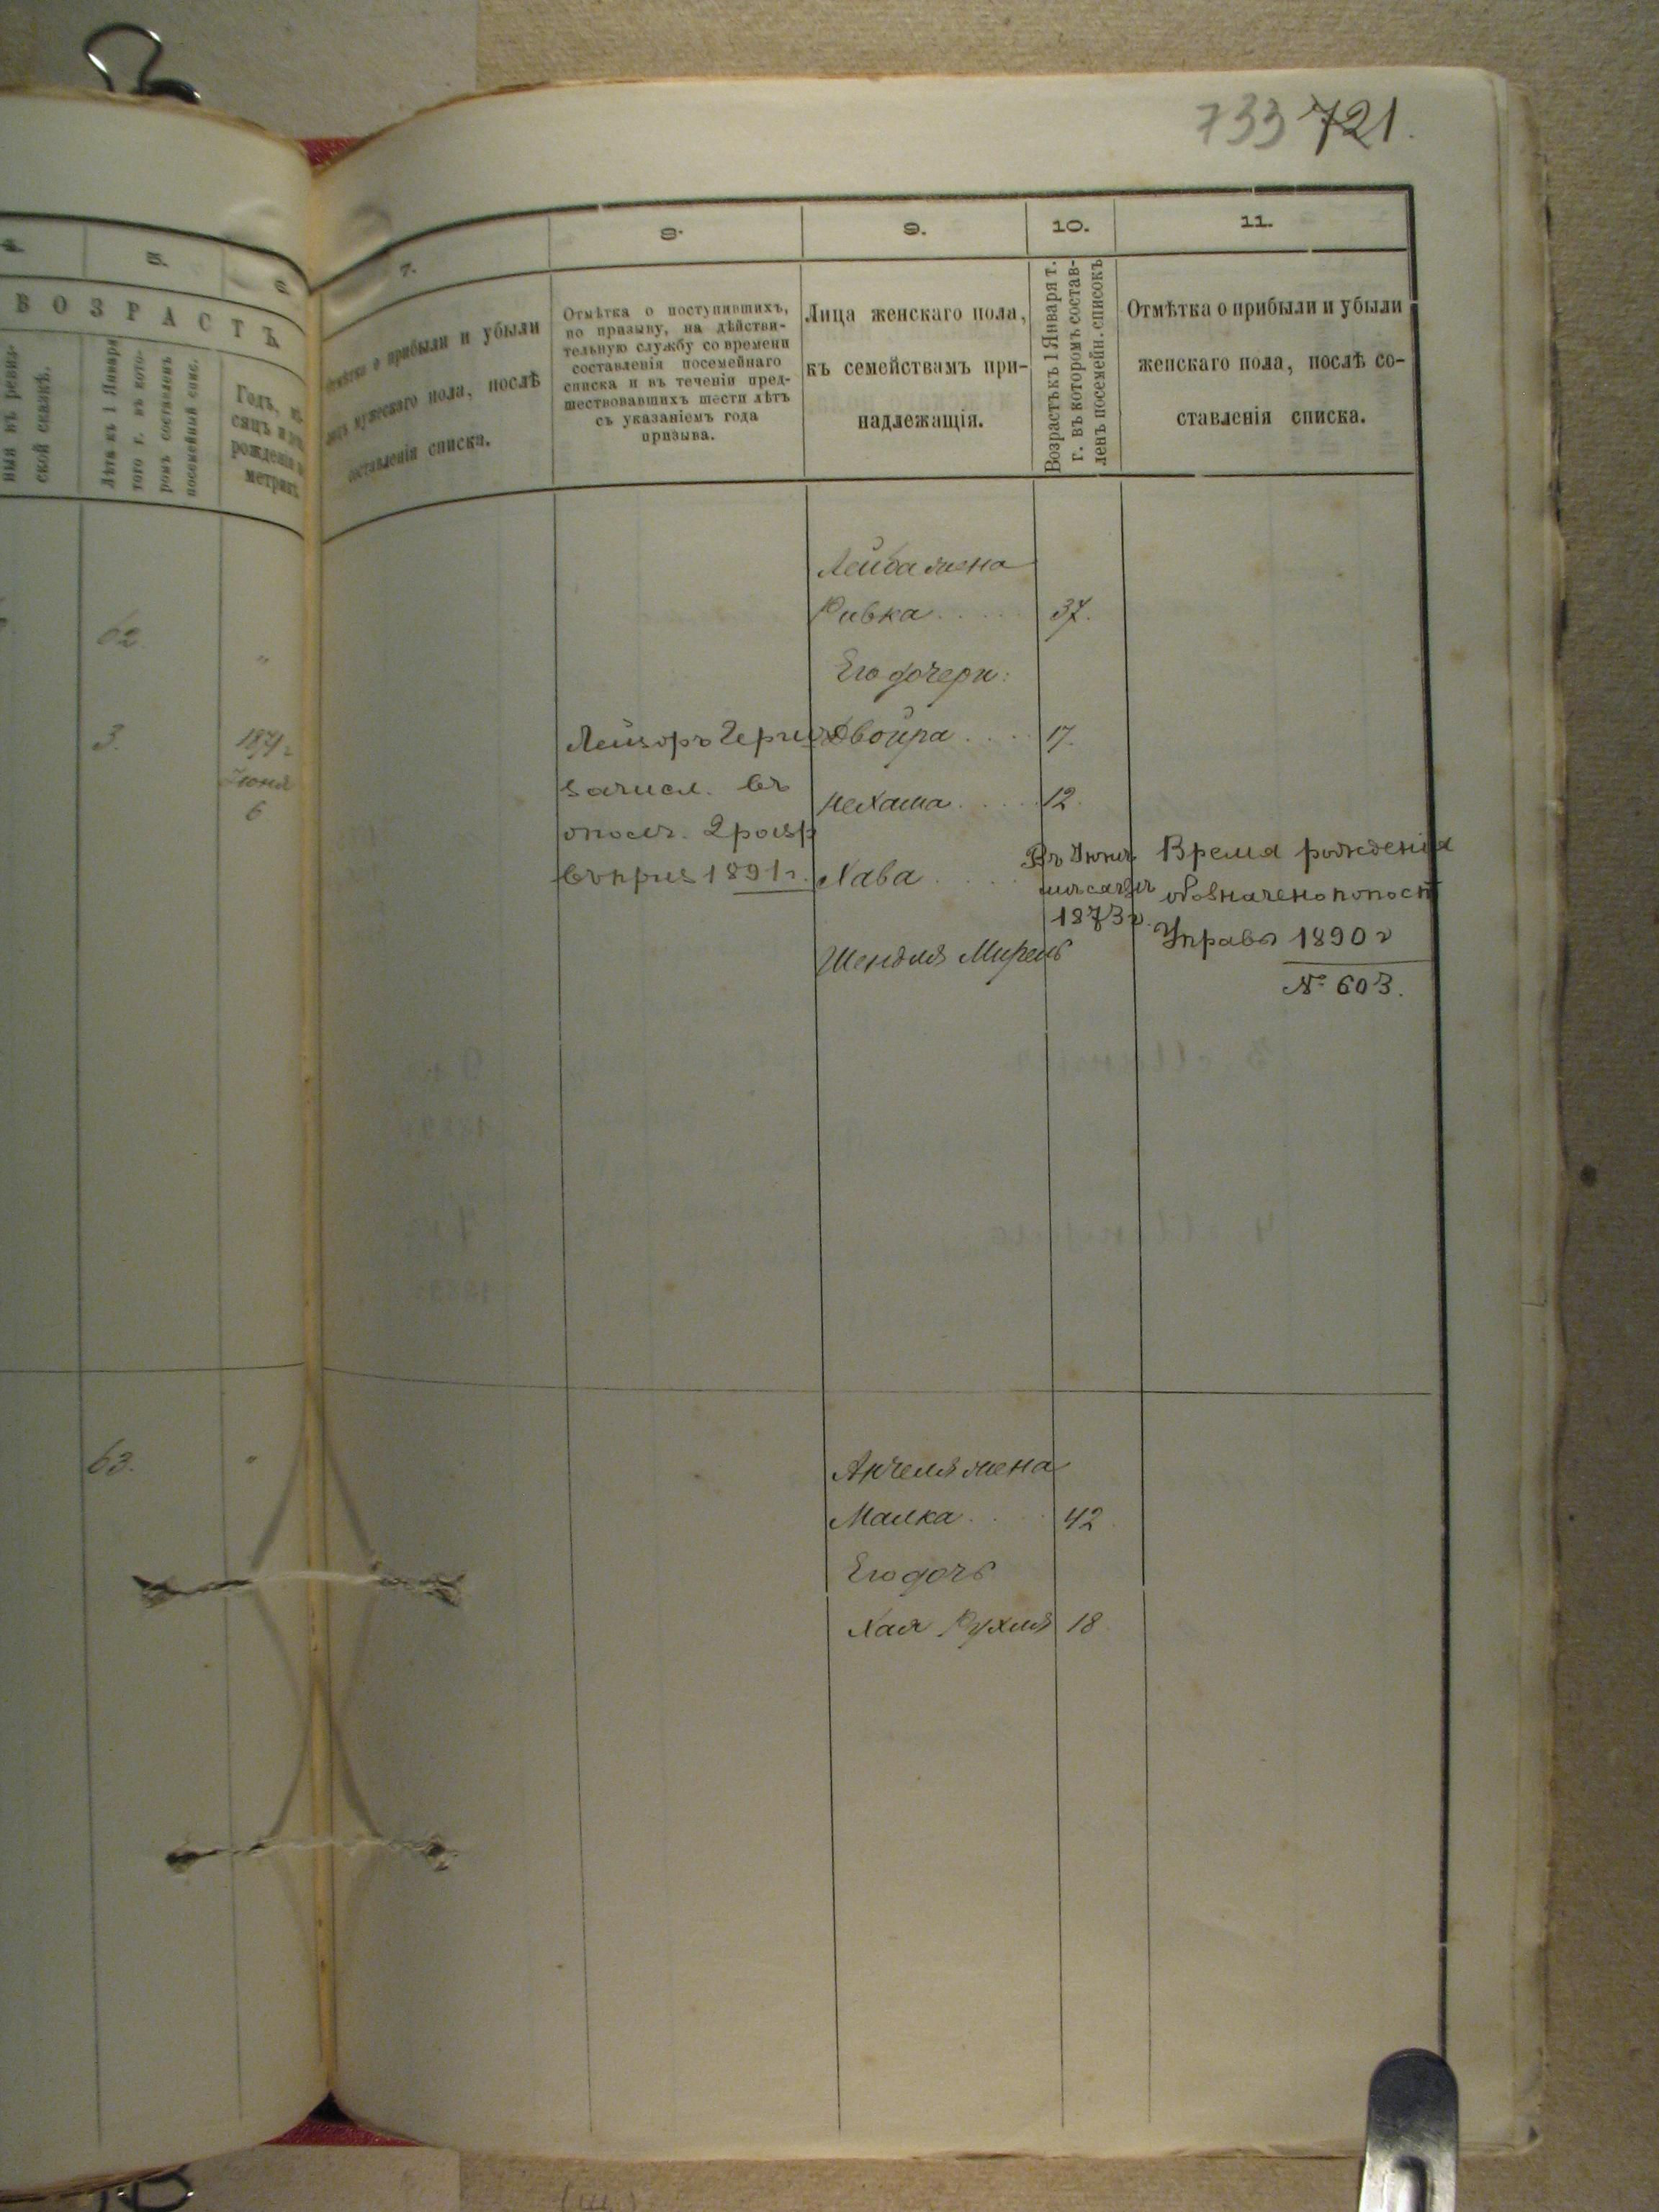 733 721.
4.
5.
6.
7.
8.
9.
10.
11.
ВОЗРАСТЪ
ской сказкѣ.
Лѣта къ 1 Января
того г. въ кото-
ромъ составленъ
посемейный спис.
Отмѣтка о прибыли и убыли
лицъ мужескаго пола, послѣ
составленія списка.
Отмѣтка о поступившихъ,
по призыву, на дѣйстви-
тельную службу со времени
составленія посемейнаго
списка и въ теченіи пред-
шествовавшихъ шести лѣтъ
съ указаніемъ года
призыва.
Лица женскаго пола,
къ семействамъ при-
надлежащія.
Возрастъ къ 1 Января т.
г. въ которомъ состав-
ленъ посемейн. списокъ
Отмѣтка о прибыли и убыли
женскаго пола, послѣ со-
ставленія списка.
62.
"
3.
1871 г.
Іюня
6
Лейзоръ
зачисл. въ
ополч. 2 разр
въ приз 1891 г.
Лейба жена
Ривка 37.
Его дочери:
Двойра 17.
Нехама 12.
Хава
Въ Іюнѣ
мѣсяцѣ
1873 г.
Время рожденія
обозначено по пост
Управы 1890 г
№ 603.
Шендля Мирель
63.
"
Анчеля жена
Малка 42
Его дочь
Хая Рухля 18